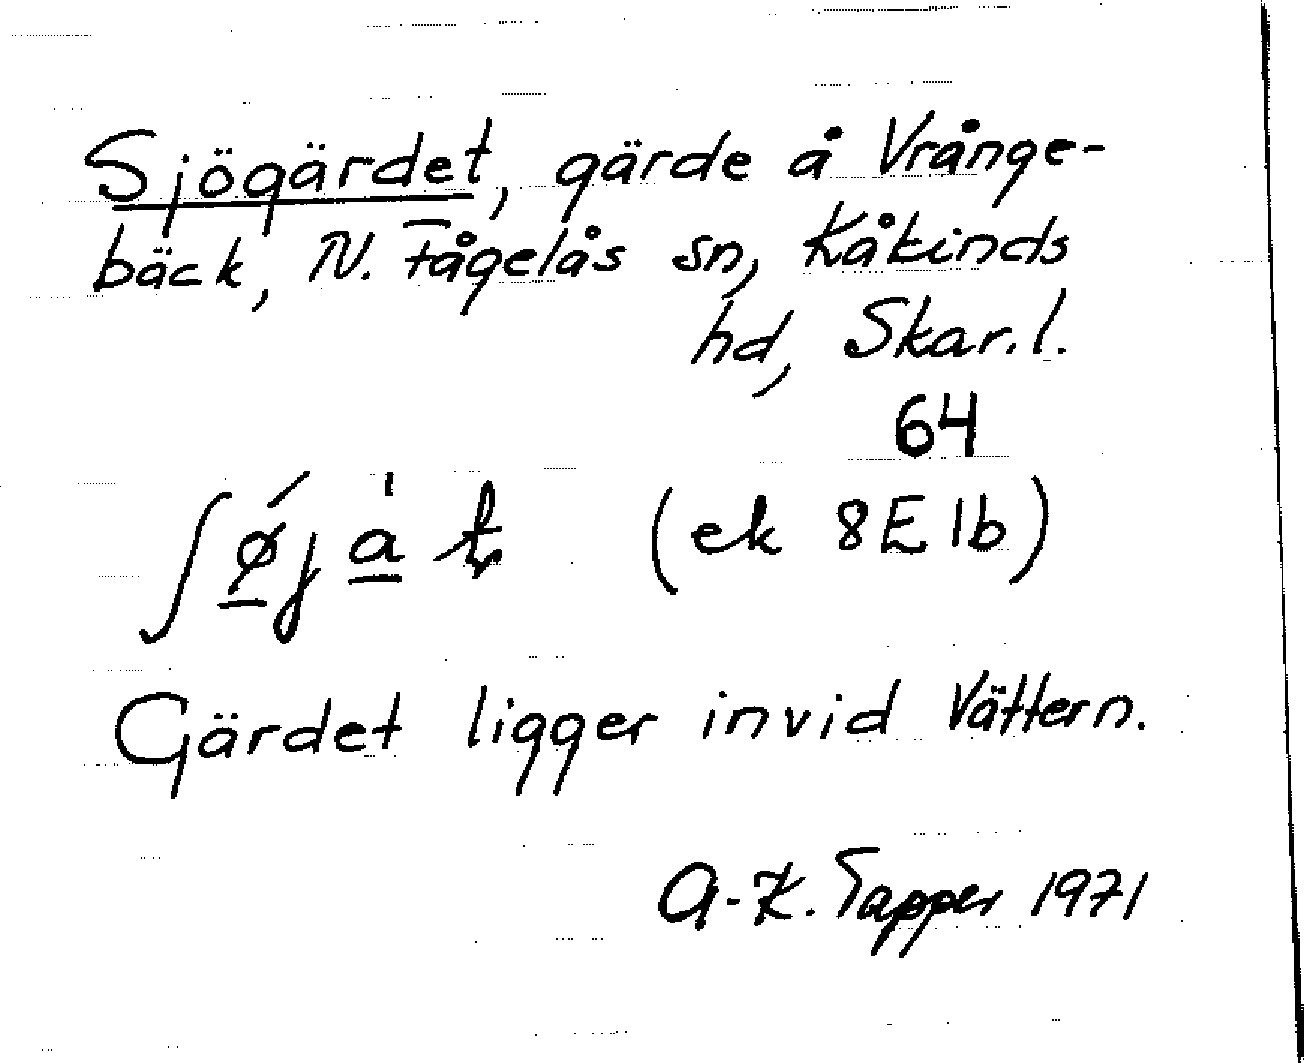 Sjögärdet, gärde å Vrånge-
bäck, N. Fågelås sn, Kåkinds
hd, Skar. l.
64
(ek 8E 1b)
Gärdet ligger invid Vättern.
A-K. Tapper 1971